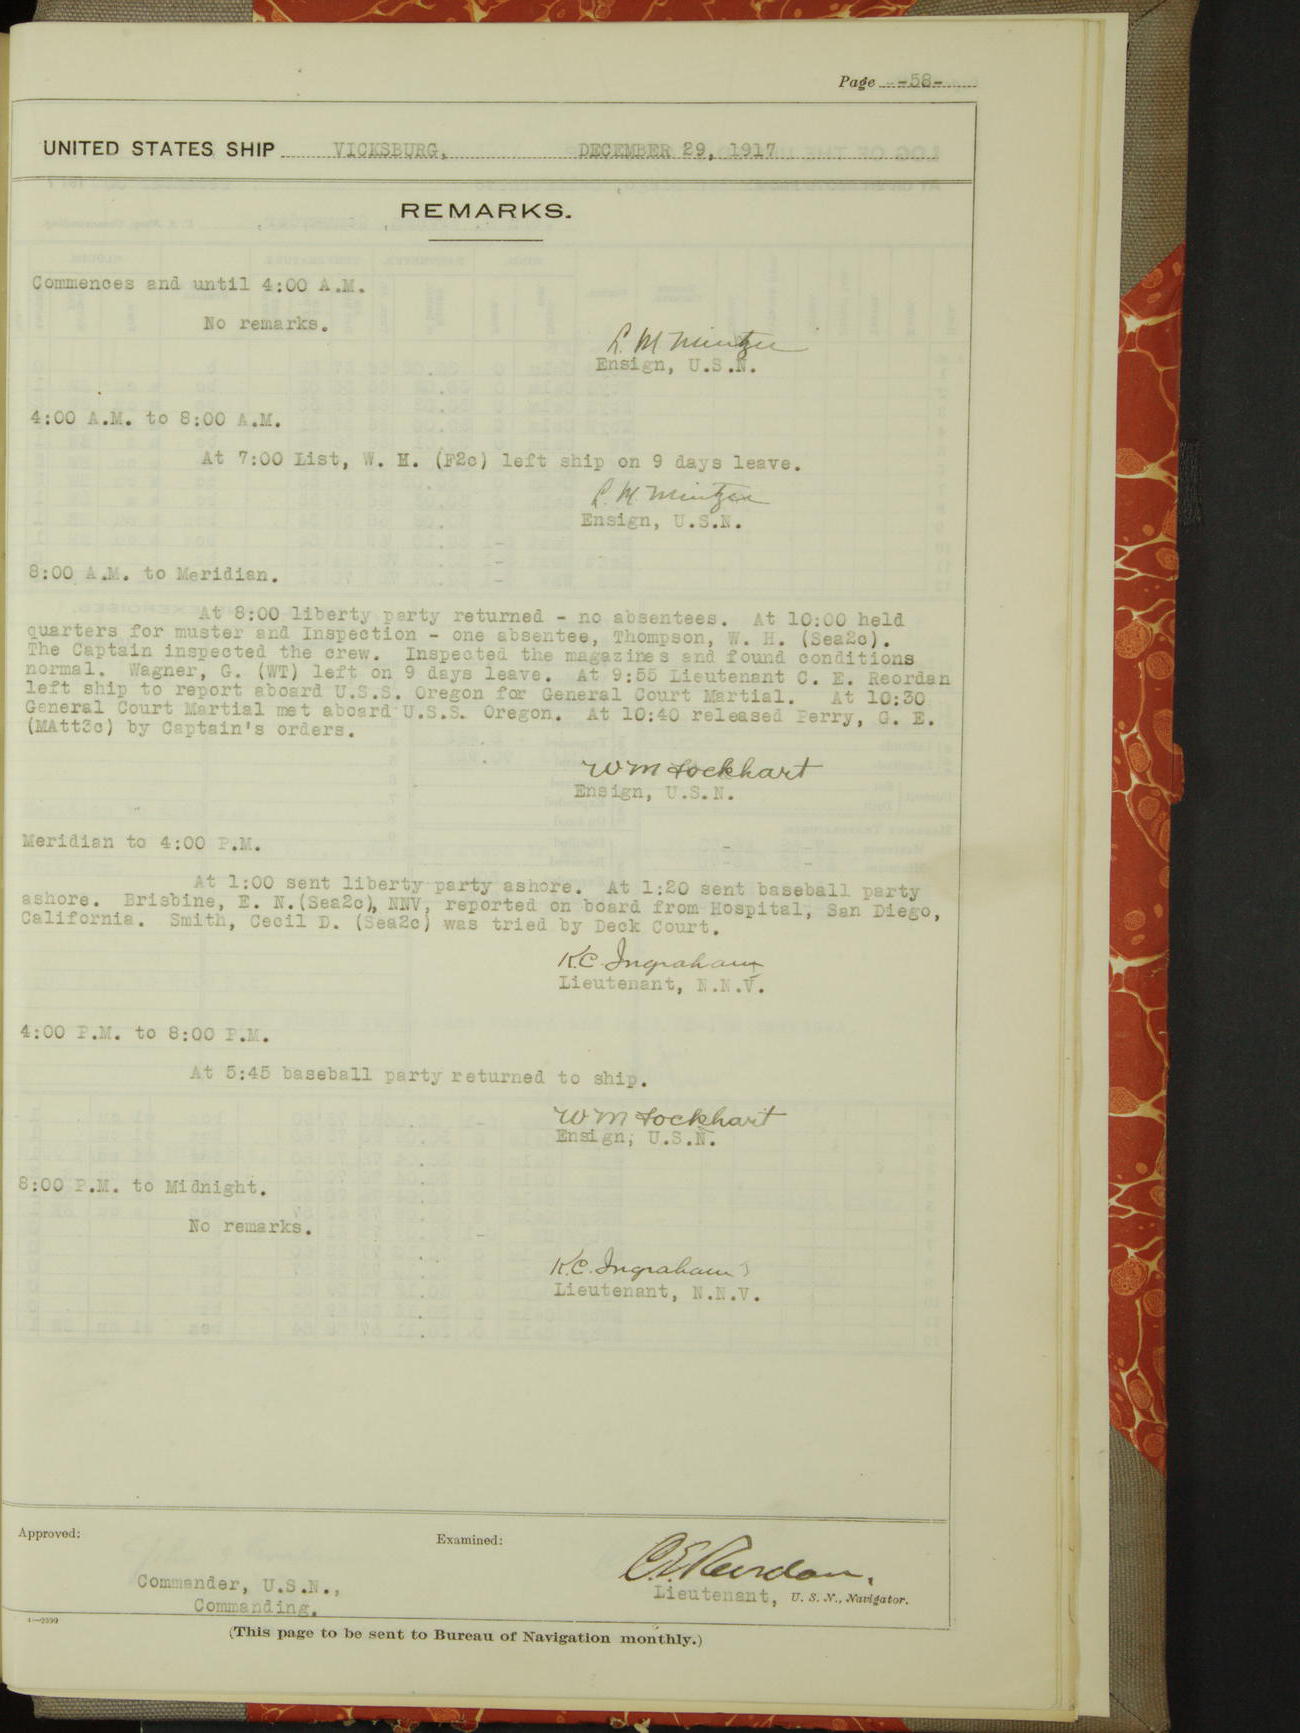 Page -58-
UNITED STATES SHIP VICKSBURG, DECEMBER 29, 1917
REMARKS.
Commences and until 4:00 A.M.
No remarks.
L. M. Mintzer
Ensign, U.S.N.
4:00 A.M. to 8:00 A.M.
At 7:00 List, W. H. (F2c) left ship on 9 days leave.
L. M. Mintzer
Ensign, U.S.N.
8:00 A.M. to Meridian.
At 8:00 liberty party returned - no absentees. At 10:00 held
quarters for muster and Inspection - one absentee, Thompson, W. H. (Sea2c).
The Captain inspected the crew. Inspected the magazines and found conditions
normal. Wagner, G. (WT) left on 9 days leave. At 9:55 Lieutenant C. E. Reordan
left ship to report aboard U.S.S. Oregon for General Court Martial. At 10:30
General Court Martial met aboard U.S.S. Oregon. At 10:40 released Perry, G. E.
(MAtt3c) by Captain's orders.
W M Lockhart
Ensign, U.S.N.
Meridian to 4:00 P.M.
At 1:00 sent liberty party ashore. At 1:20 sent baseball party
ashore. Brisbine, E. N.(Sea2c), NNV, reported on board from Hospital, San Diego,
California. Smith, Cecil D. (Sea2c) was tried by Deck Court.
K.C. Ingraham
Lieutenant, N.N.V.
4:00 P.M. to 8:00 P.M.
At 5:45 baseball party returned to ship.
W M Lockhart
Ensign, U.S.N.
8:00 P.M. to Midnight.
No remarks.
K.C. Ingraham
Lieutenant, N.N.V.
Approved: Examined:
C.E. Reordan.
Commander, U.S.N., Lieutenant, U. S. N., Navigator.
Commanding.
(This page to be sent to Bureau of Navigation monthly.)